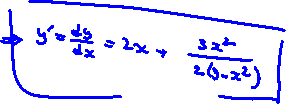 ⇒ y' = dy/dx = 2x + 3x²/2(y-x²)